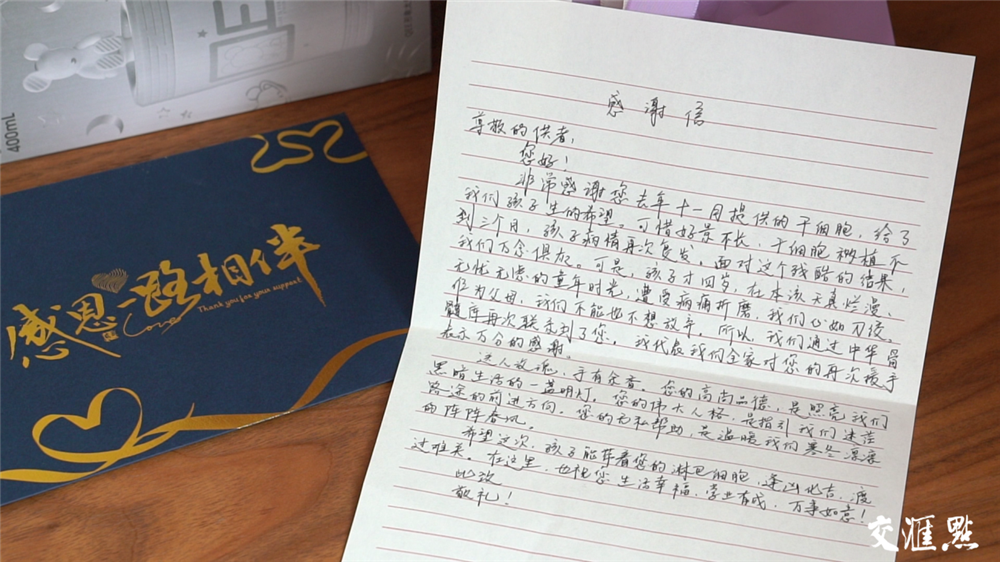 400mL
感恩一路相伴
Thank you for your support
Love
感谢信
尊敬的供者:
您好!
非常感谢您去年十一月提供的干细胞,给了
我们孩子生的希望。可惜好景不长,干细胞移植不
到三个月,孩子病情再次复发,面对这个残酷的结果,
我们万念俱灰。可是,孩子才四岁,在本该天真烂漫、
无忧无虑的童年时光,遭受病痛折磨,我们心如刀绞。
作为父母,我们不能也不想放弃。所以,我们通过中华骨
髓库再次联系到了您。我代表我们全家对您的再次援手
表示万分的感谢。
送人玫瑰,手有余香。您的高尚品德,是照亮我们
黑暗生活的一盏明灯。您的伟大人格,是指引我们迷茫
路途的前进方向。您的无私帮助,是温暖我们寒冬凛冽
的阵阵春风。
希望这次,孩子能带着您的淋巴细胞,逢凶化吉,渡
过难关。在这里,也祝您生活幸福,学业有成,万事如意!
此致
敬礼!
交汇點